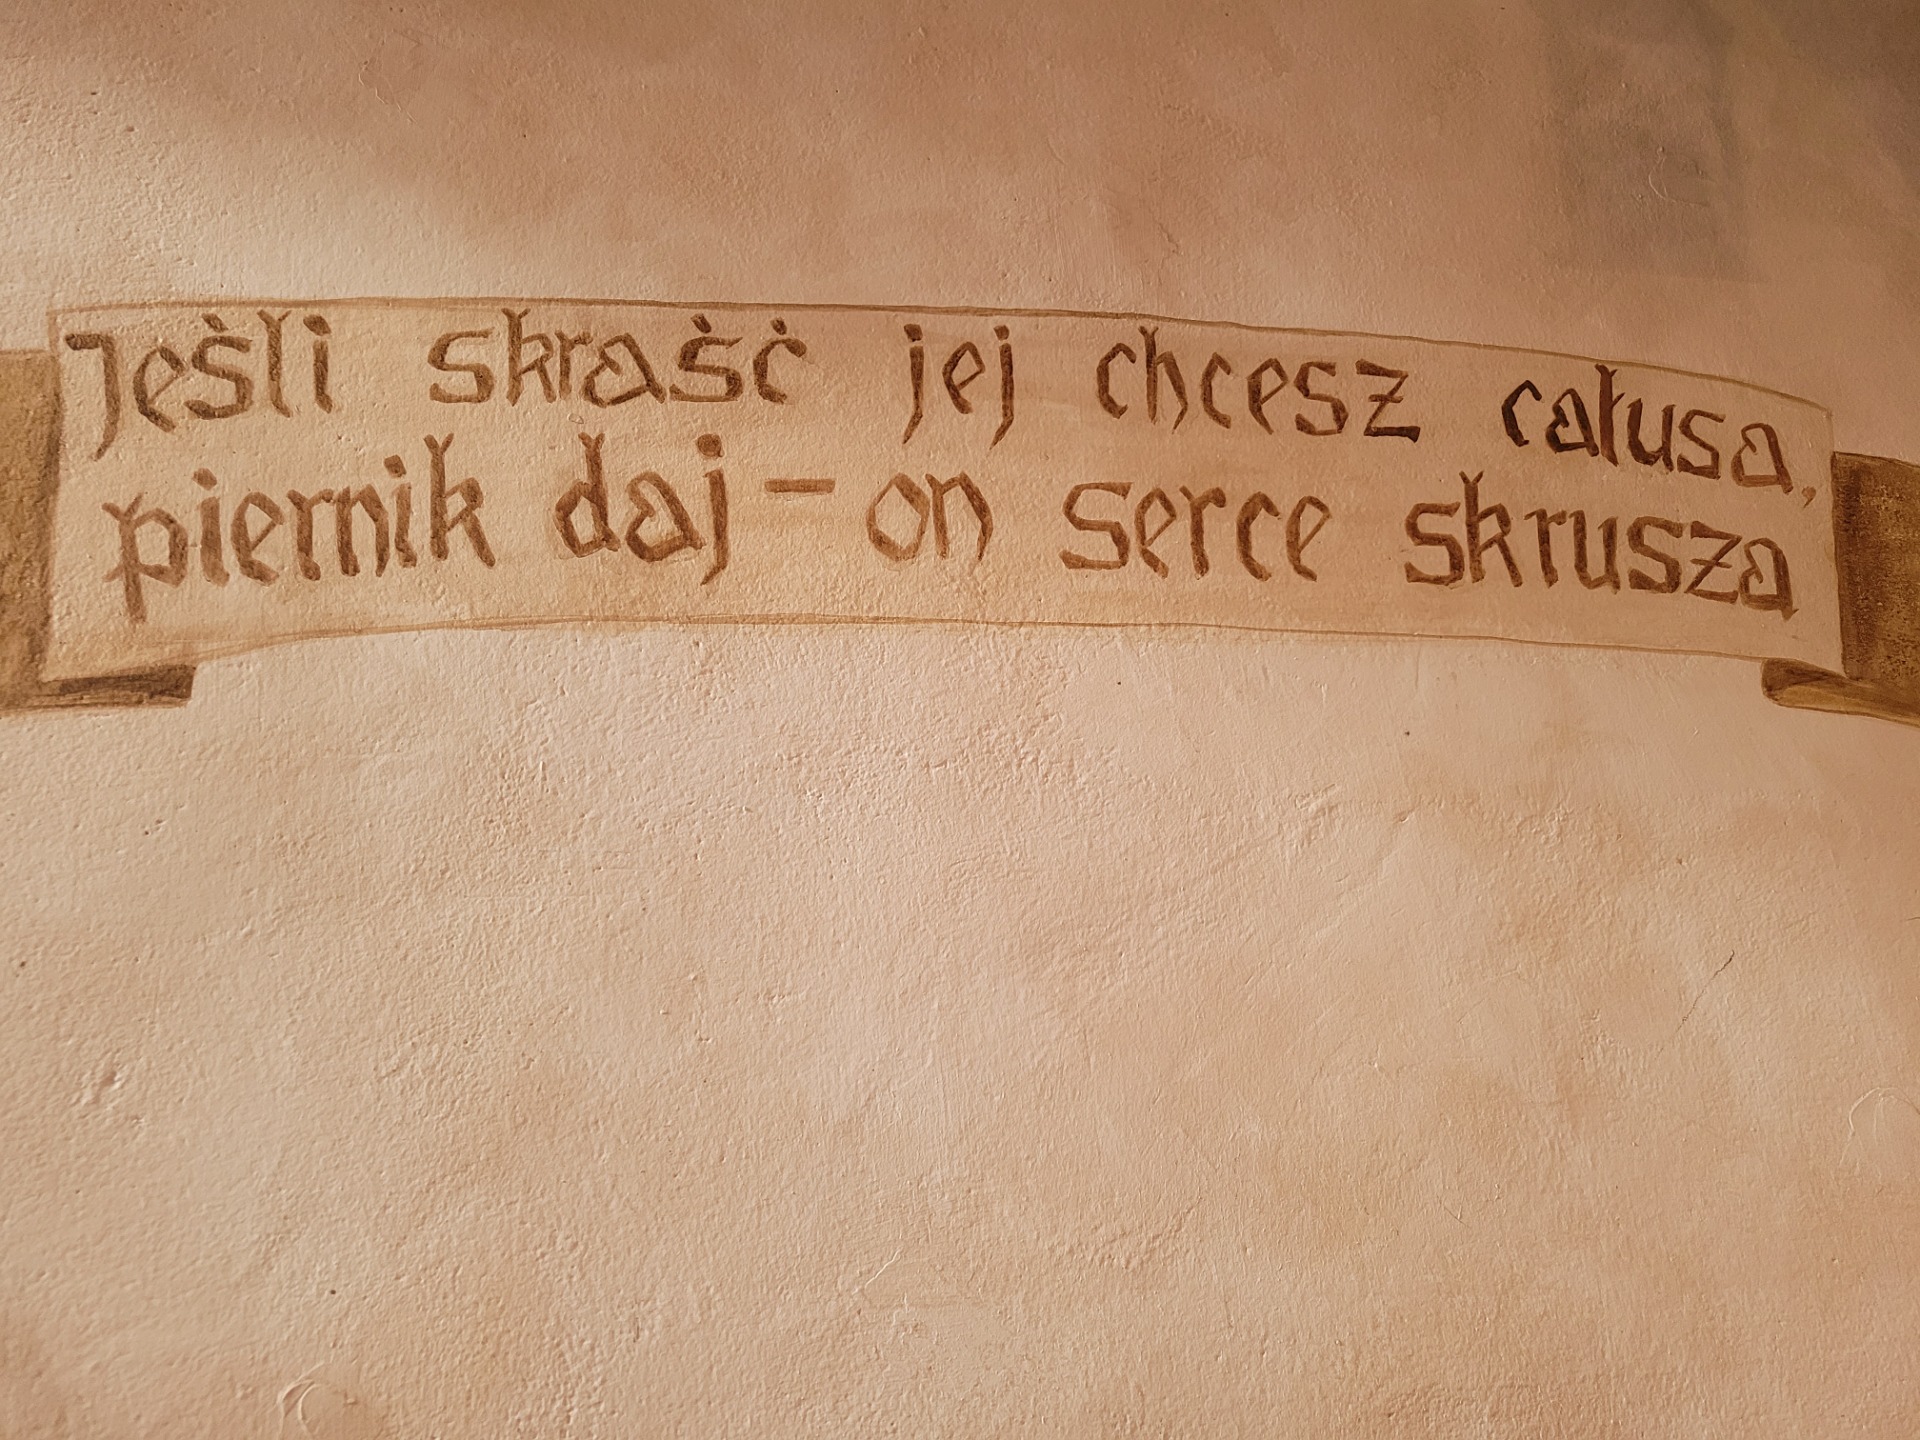 Jeśli skraść jej chcesz całusa,
piernik daj – on serce skrusza